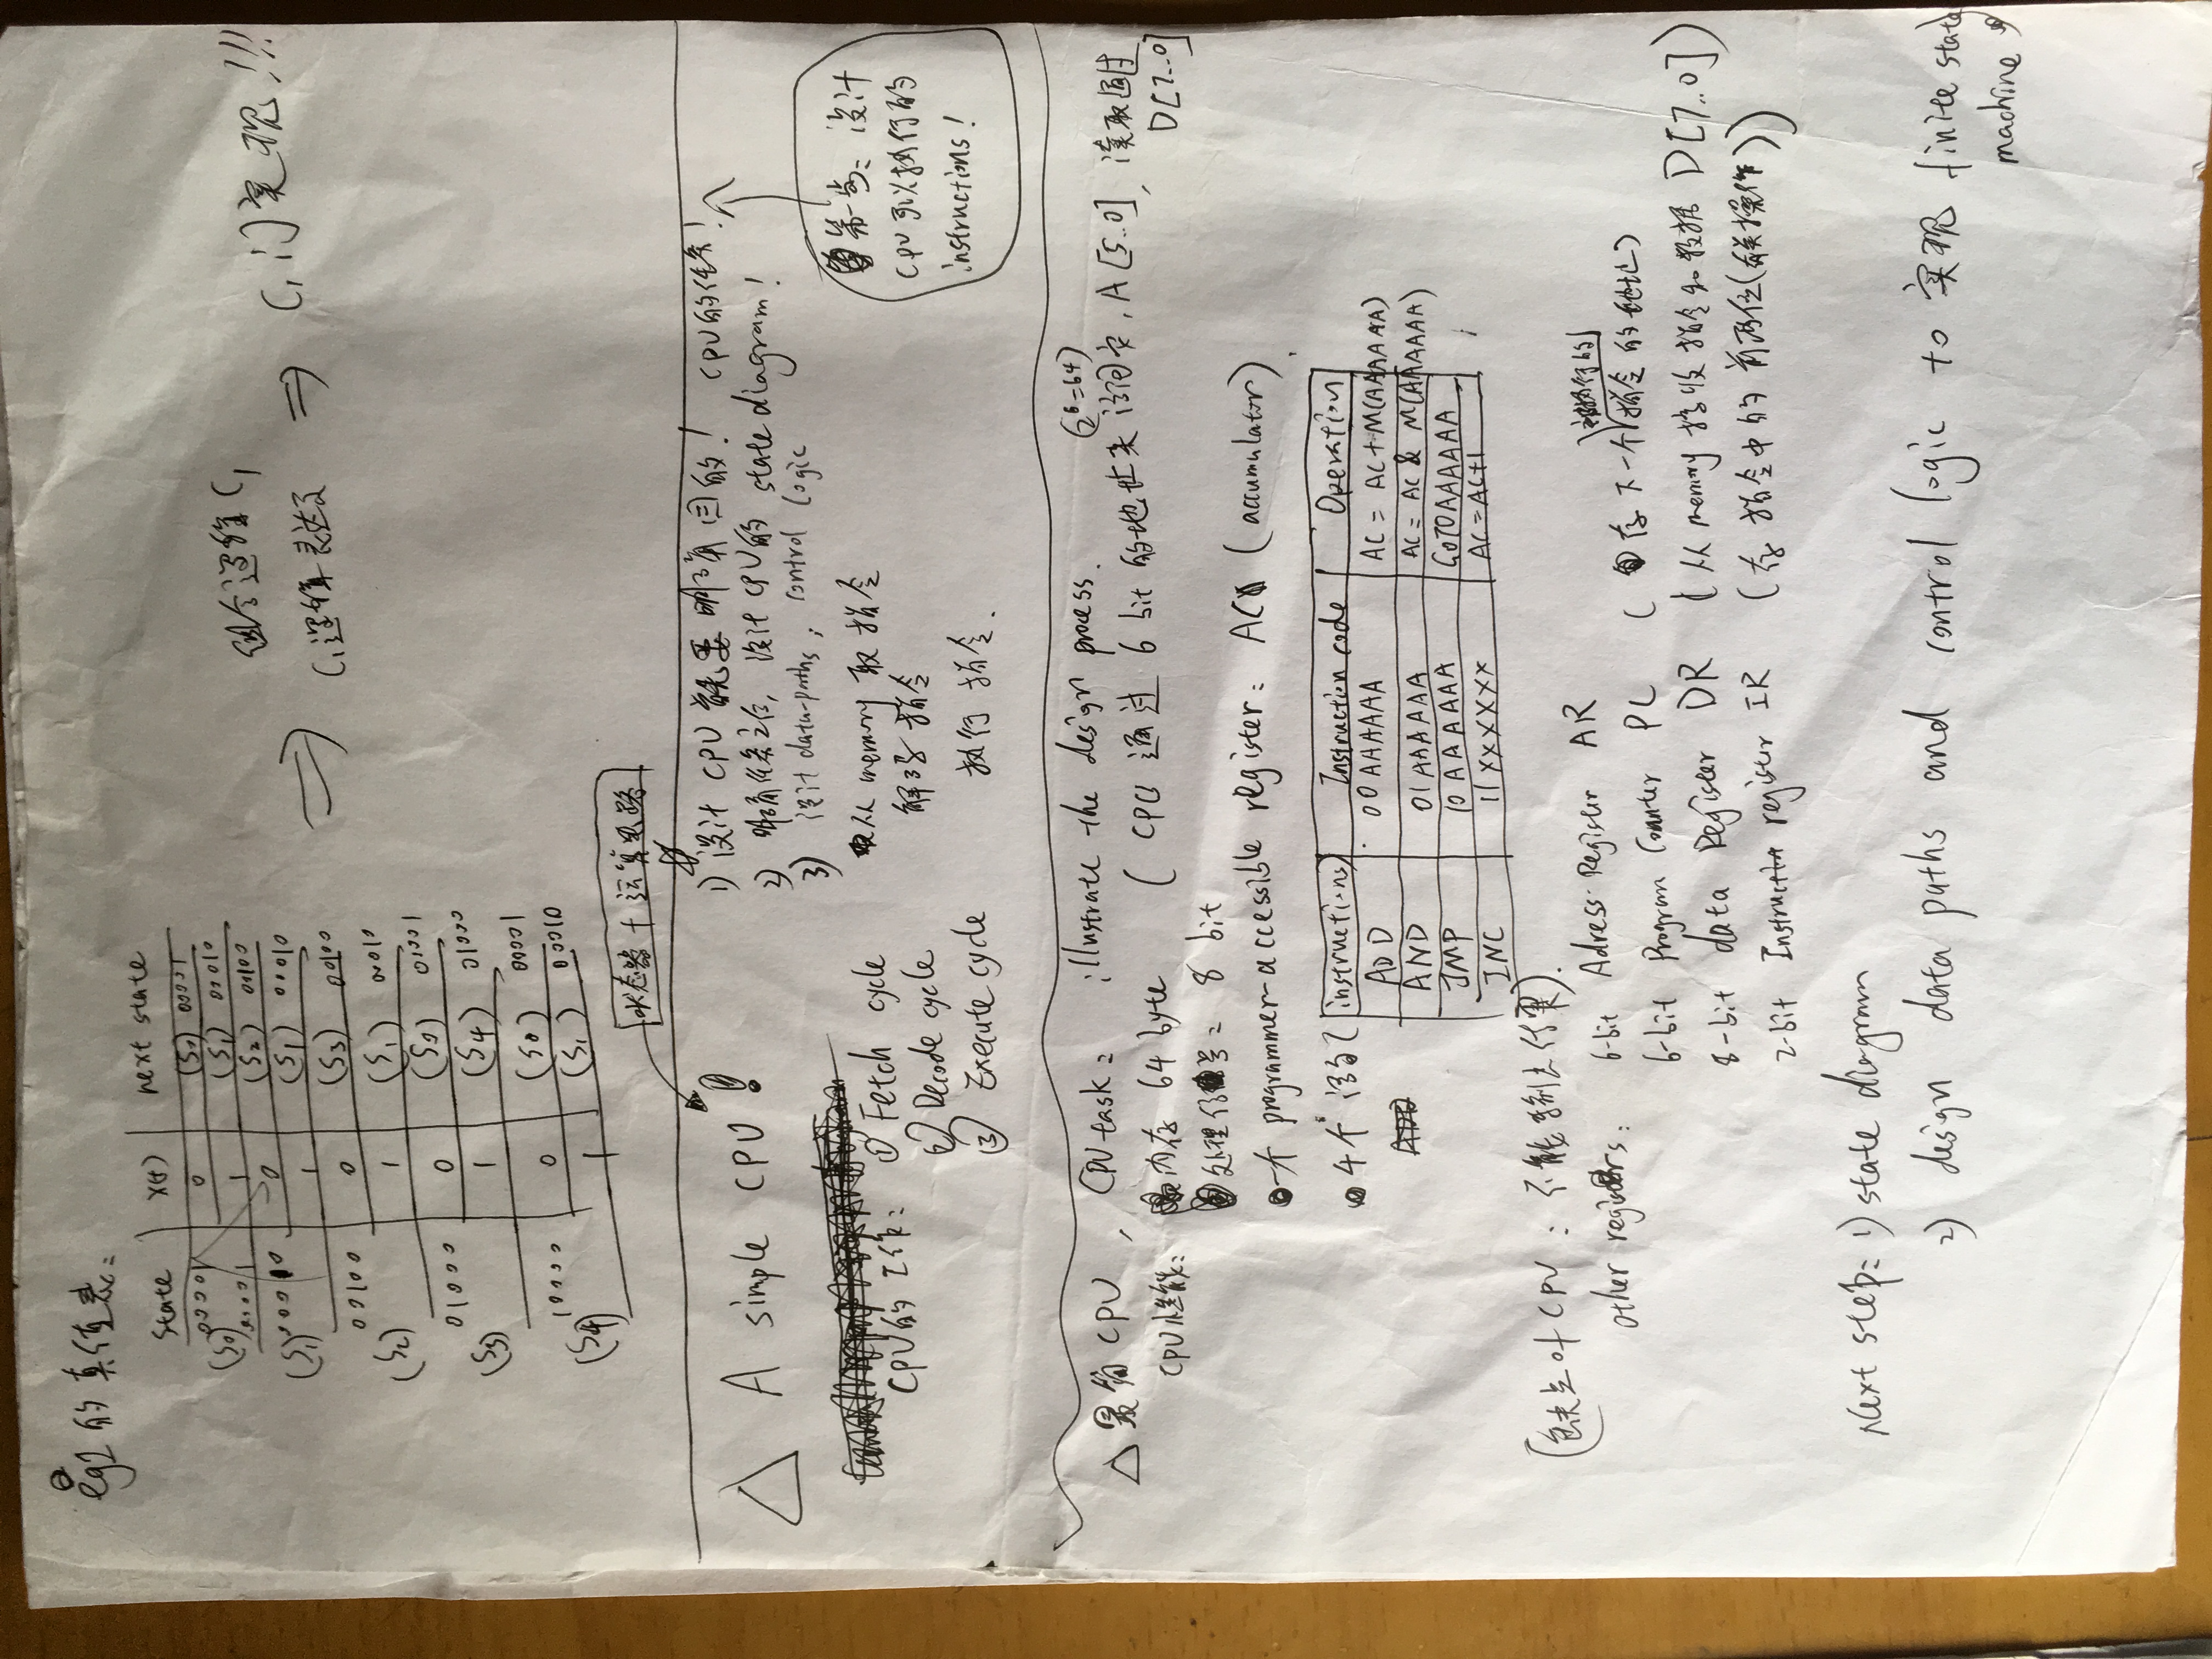 eg1的真值表:
state x(t) next state
(S0) 0 (S0) 00001
1 (S1) 00010
(S1) 0 (S2)
1 (S1)
00100 0 (S3)
(S2) 1 (S1)
01000 0 (S0)
(S3) 1 (S4)
10000 0 (S0) 00001
(S4) 1 (S1) 00010
⇒ 组合逻辑C1 ⇒ C1门实现!!!
C1逻辑表达式
状态器 + 运算电路
△ A simple CPU!
1) 设计CPU就要明确目的! CPU的任务!
2) 明确任务之后, 设计CPU的 state diagram!
3) 设计 data-paths, control logic
第一步: 设计
CPU可以执行的
instructions!
CPU的工作: ① Fetch cycle 从 memory 取指令
② Decode cycle 解码指令
③ Execute cycle 执行指令.
△ 最简CPU, CPU task: illustrate the design process.
(2^6=64)
CPU性能: 内存 64 byte (CPU 通过 6 bit 的地址来访问它, A[5..0], 读取通过
D[7..0]
处理信号: 8 bit
一个 programmer-accessible register: AC (accumulator)
4个语句
instructions Instruction code Operation
ADD 00AAAAAA AC = AC+M(AAAAAA)
AND 01AAAAAA AC = AC & M(AAAAAA)
JMP 10AAAAAA GOTOAAAAAA
INC 11XXXXXX AC=AC+1
(缺点 of CPU: 不能
other registers: 6-bit Adress Register AR
被执行的
6-bit Program Counter PC (存下一个指令的地址)
8-bit data Register DR (从 memory 接收指令和数据 D[7..0])
2-bit Instruction register IR (存指令中的前两位(有关操作))
Next step: 1) state diagram
2) design data paths and control logic to 实现 finite state
machine